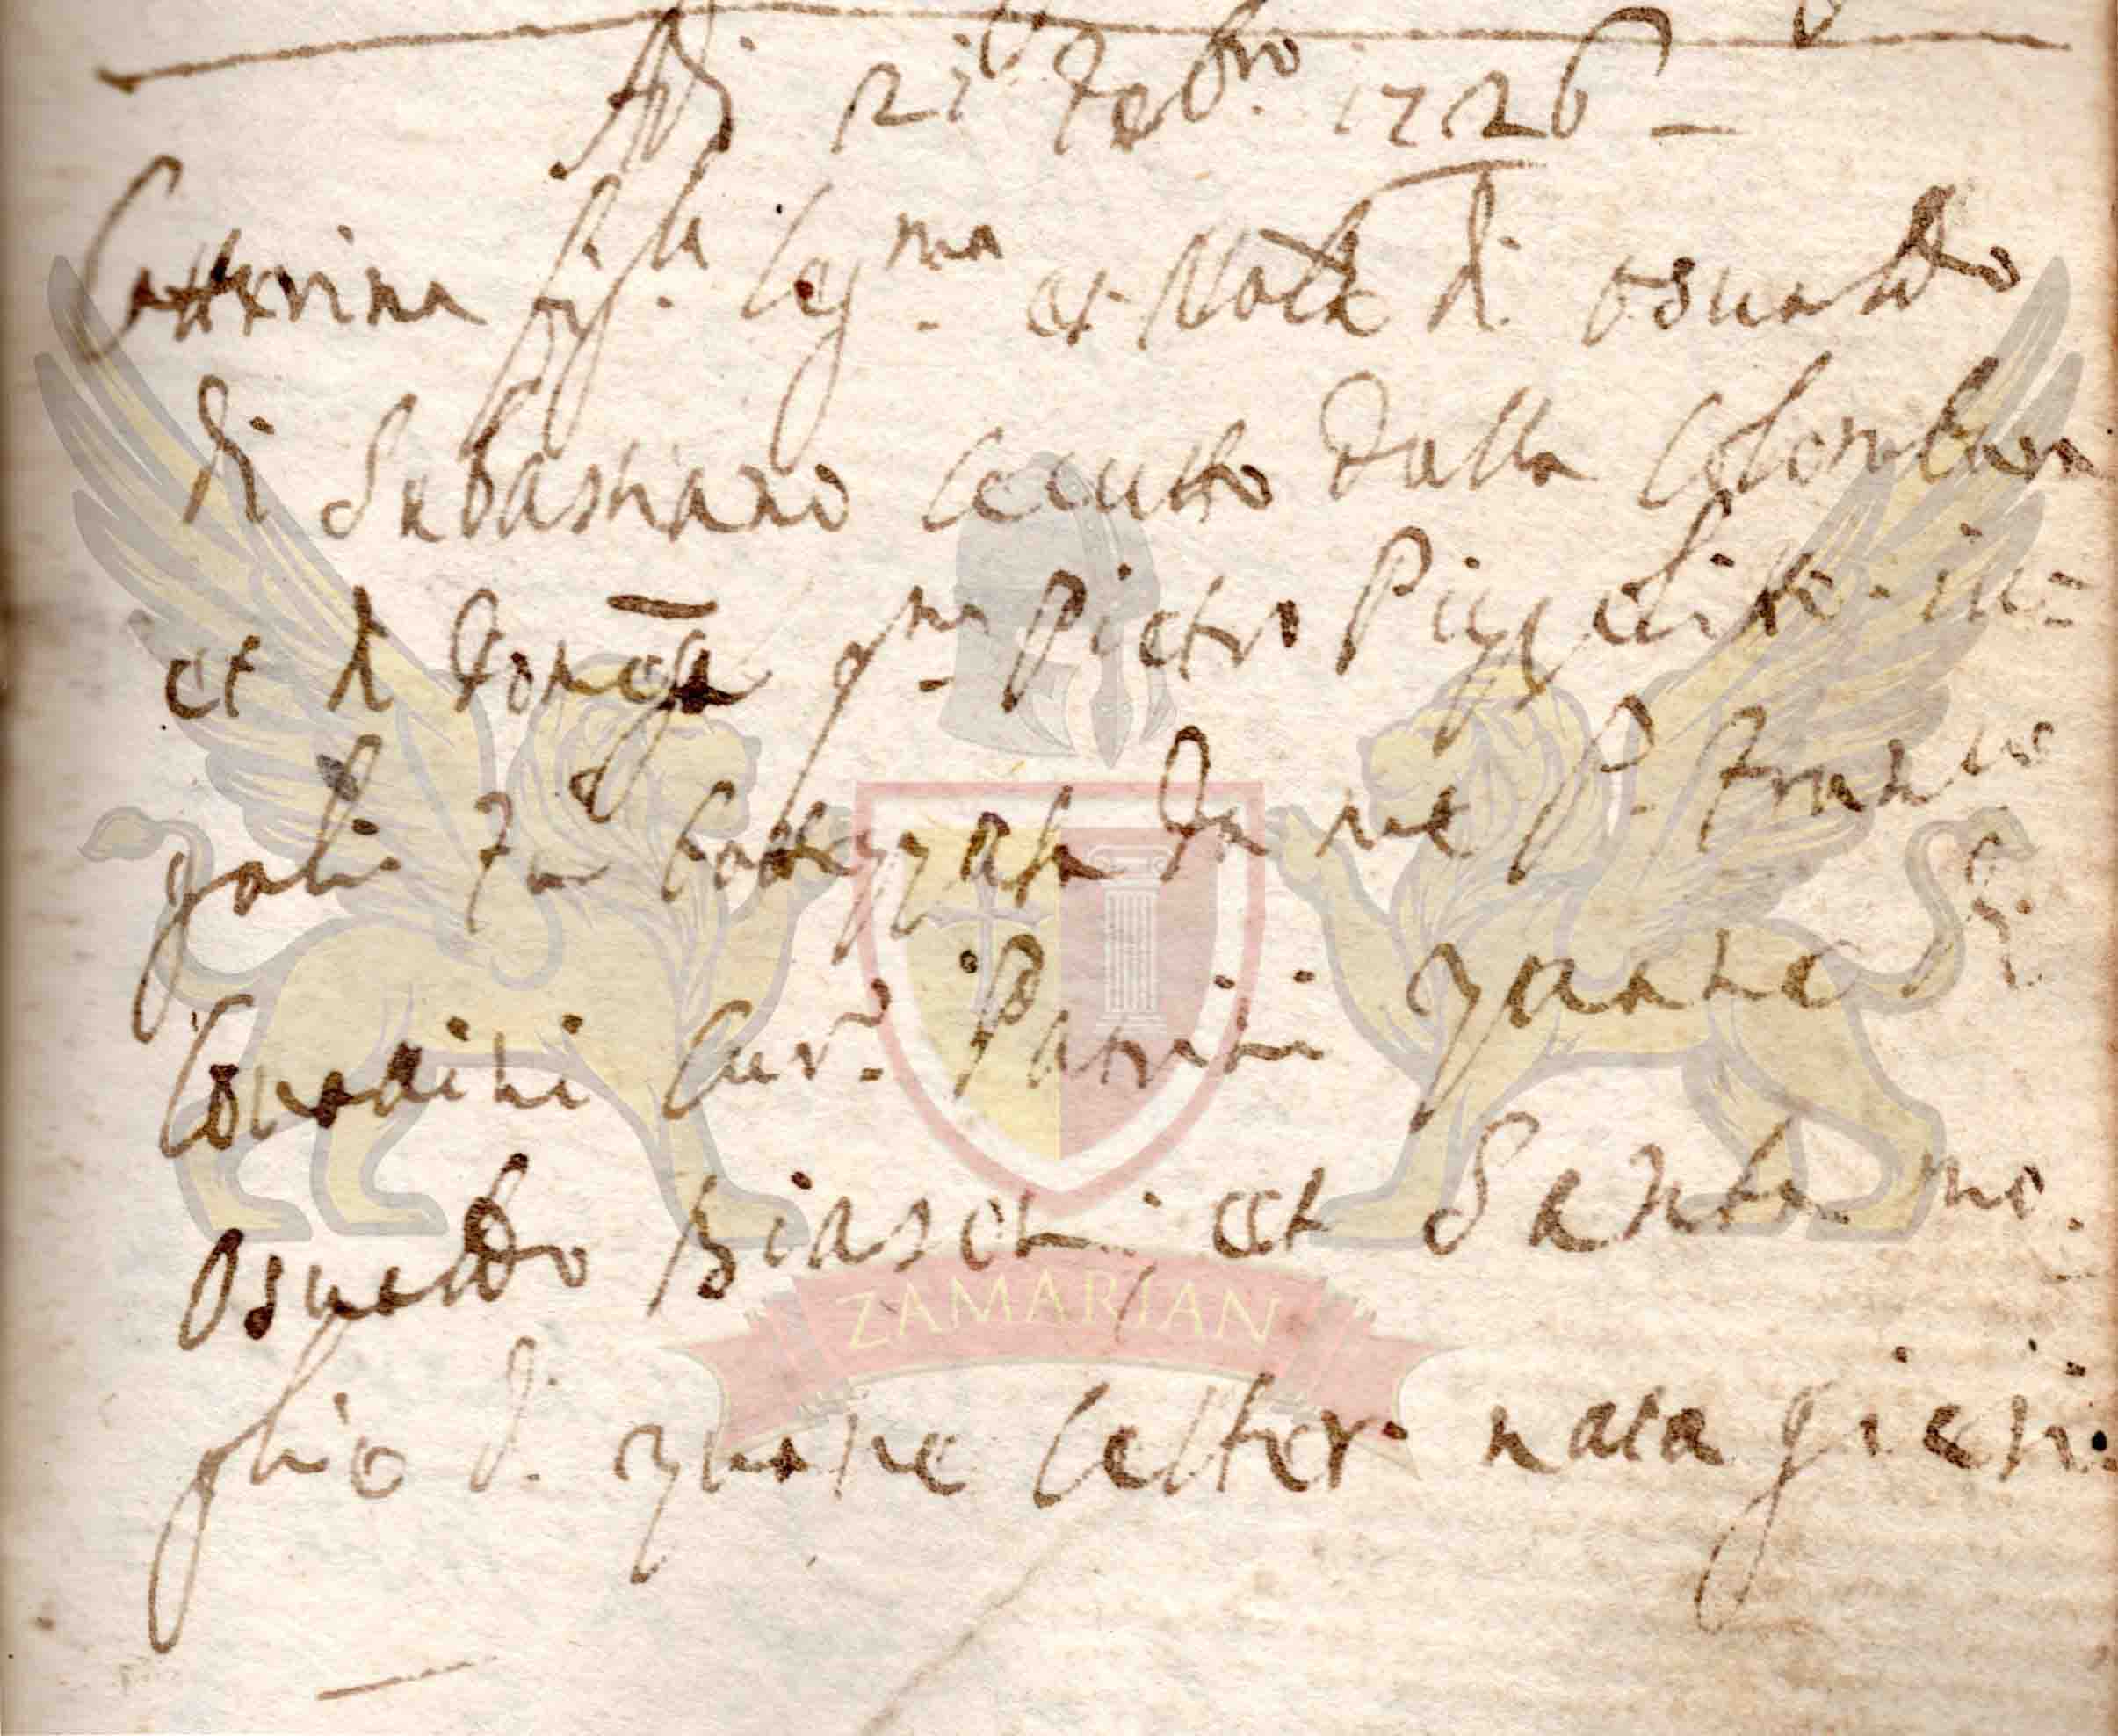 Adi 21 Feb.ro 1726
Catterina fig.la leg.ma et Nat.le di Osualdo
di Sebastiano Cecutto dalla Colombara
et di Domēga q.m Pietro Pizzelitto iu=
gali fu battezzata da me P. Fran.co
Conradini Cur.o Patrini Zuane di
Osualdo Biasot; et Santa mo.
glie di Zuane Catter. nata gieri.
ZAMARIAN